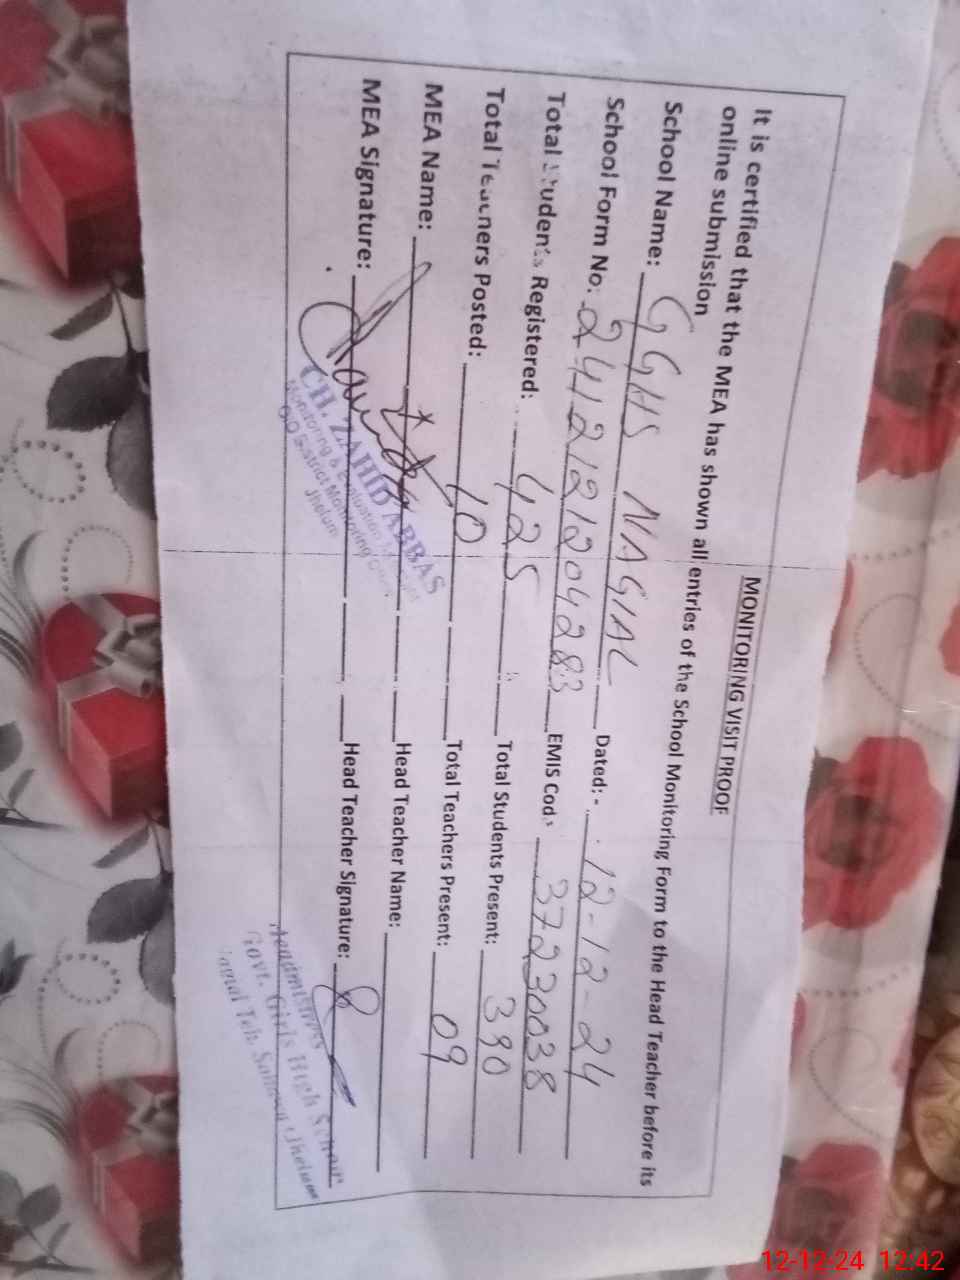 MONITORING VISIT PROOF
It is certified that the MEA has shown all entries of the School Monitoring Form to the Head Teacher before its
online submission
School Name: GGHS NAGIAL Dated: - 12-12-24
School Form No: 2412121204283 EMIS Code 37230038
Total Students Registered: 425 Total Students Present: 390
Total Teachers Posted: 10 Total Teachers Present: 09
MEA Name: Head Teacher Name:
MEA Signature: Head Teacher Signature:
CH. ZAHID ABBAS
Monitoring & Evaluation
O/O District Monitoring
Jhelum
Headmistress
Govt. Girls High School
Nagial Teh. Sohawa (Jhelum
12-12-24 12:42